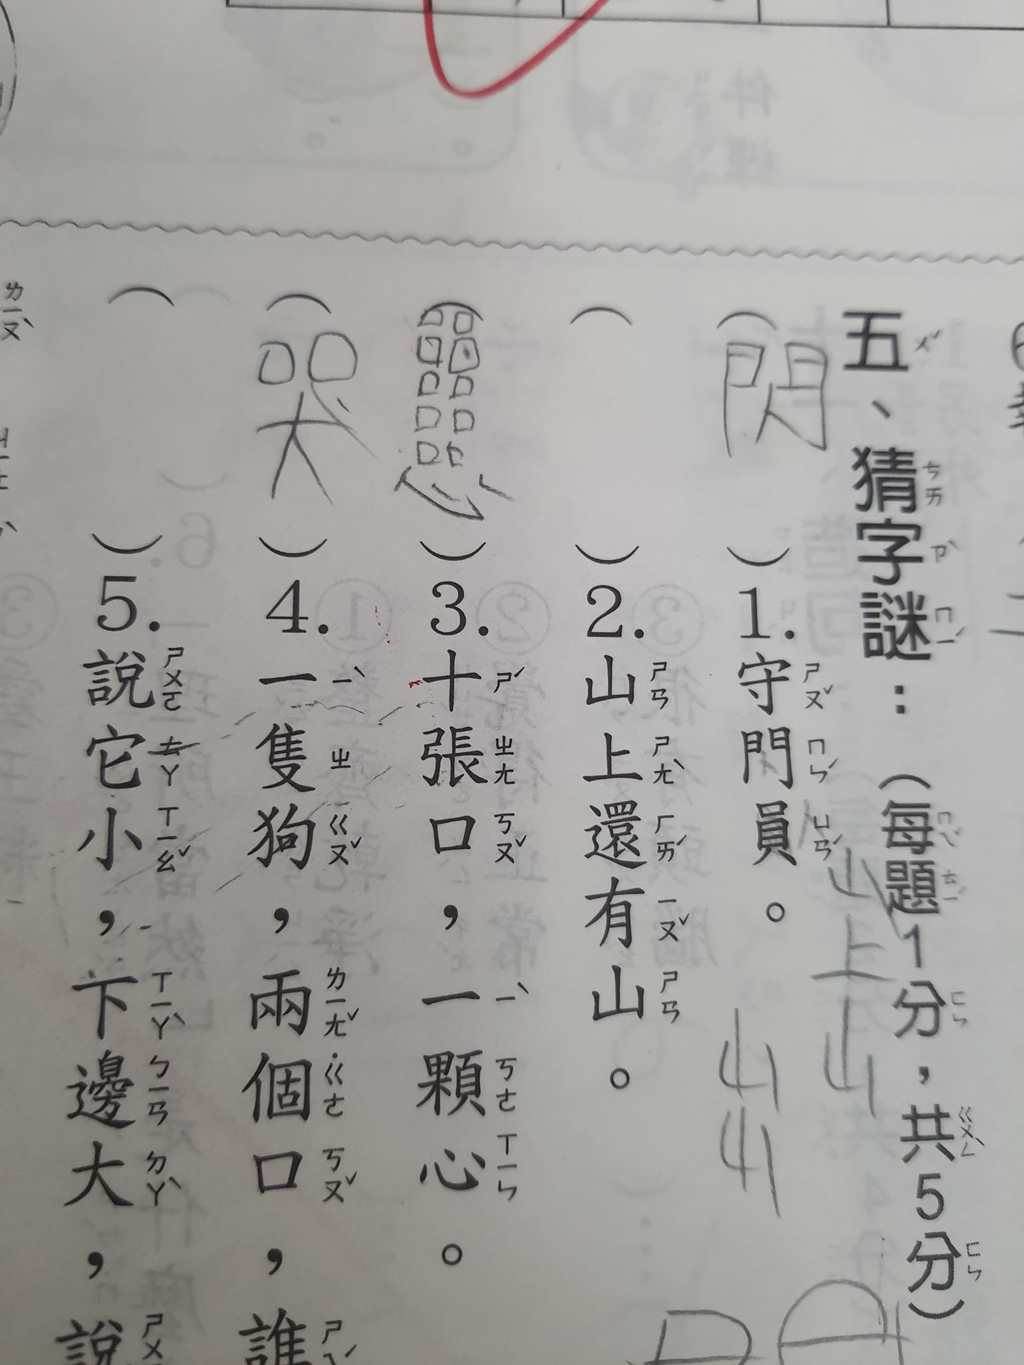 五、猜字謎：（每題1分，共5分）
（閃）1.守門員。
（　）2.山上還有山。
山上山
山山
（　）3.十張口，一顆心。
（哭）4.一隻狗，兩個口，誰
（　）5.說它小，下邊大，說